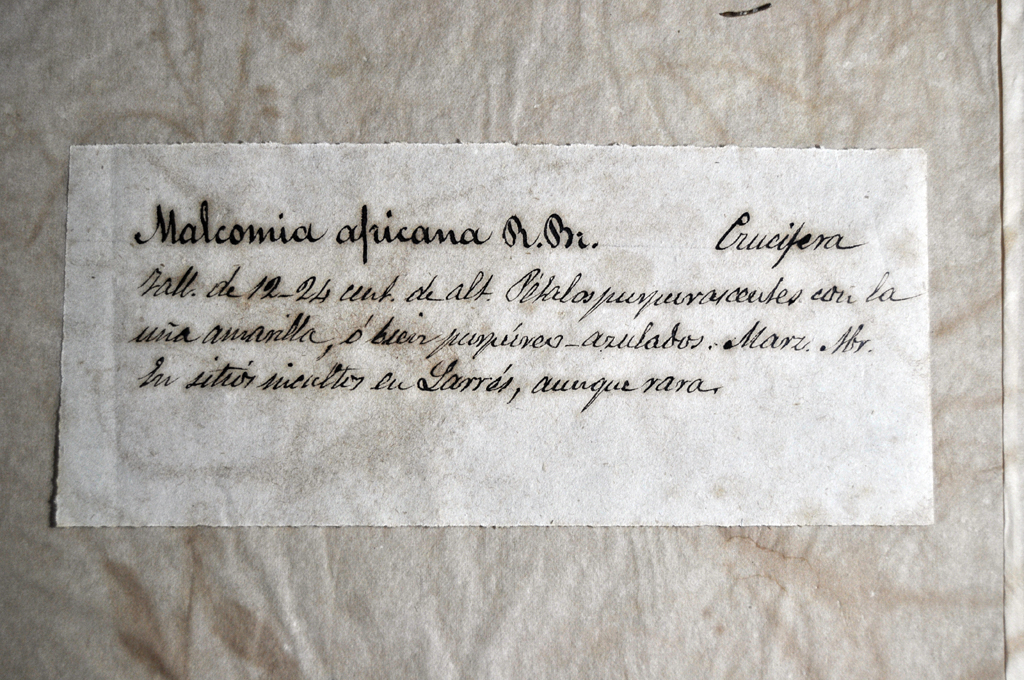 Malcomia africana R. Br. Crucifera
Tall. de 12-24 cent. de alt. Pétalos purpurascentes con la
uña amarilla, ó bien purpúreo-azulados. Marz. Abr.
En sitios incultos en Larrés, aunque rara.